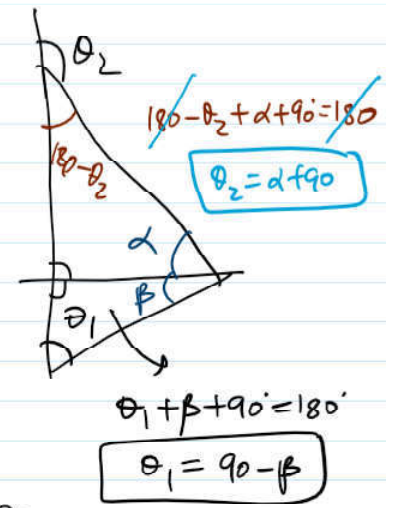 θ₂
180-θ₂+α+90°=180
180-θ₂
θ₂=α+90
α
β
θ₁
θ₁+β+90°=180°
θ₁=90-β